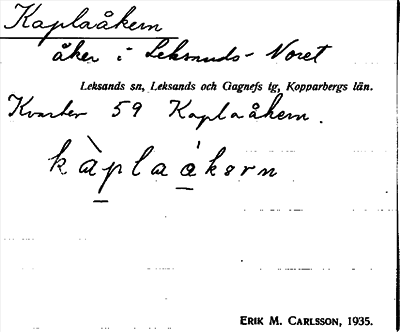 Kaplaåkern
åker i Leksands-Noret
Leksands sn, Leksands och Gagnefs tg, Kopparbergs län.
Kvarter 59 Kaplaåkern.
kàplaákərn
ERIK M. CARLSSON, 1935.